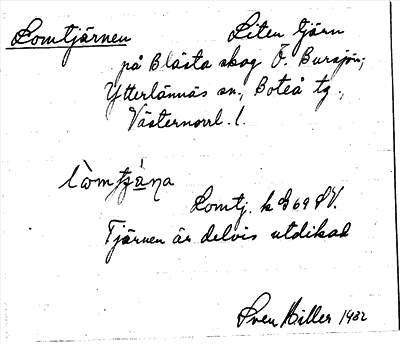 Lomtjärnen
Liten tjärn
på Blästa skog Ö. Bursjön;
Ytterlännäs sn., Boteå tg.,
Västernorrl. l.
Lomtj. k
Tjärnen är delvis utdikad
Sven Hiller 1932